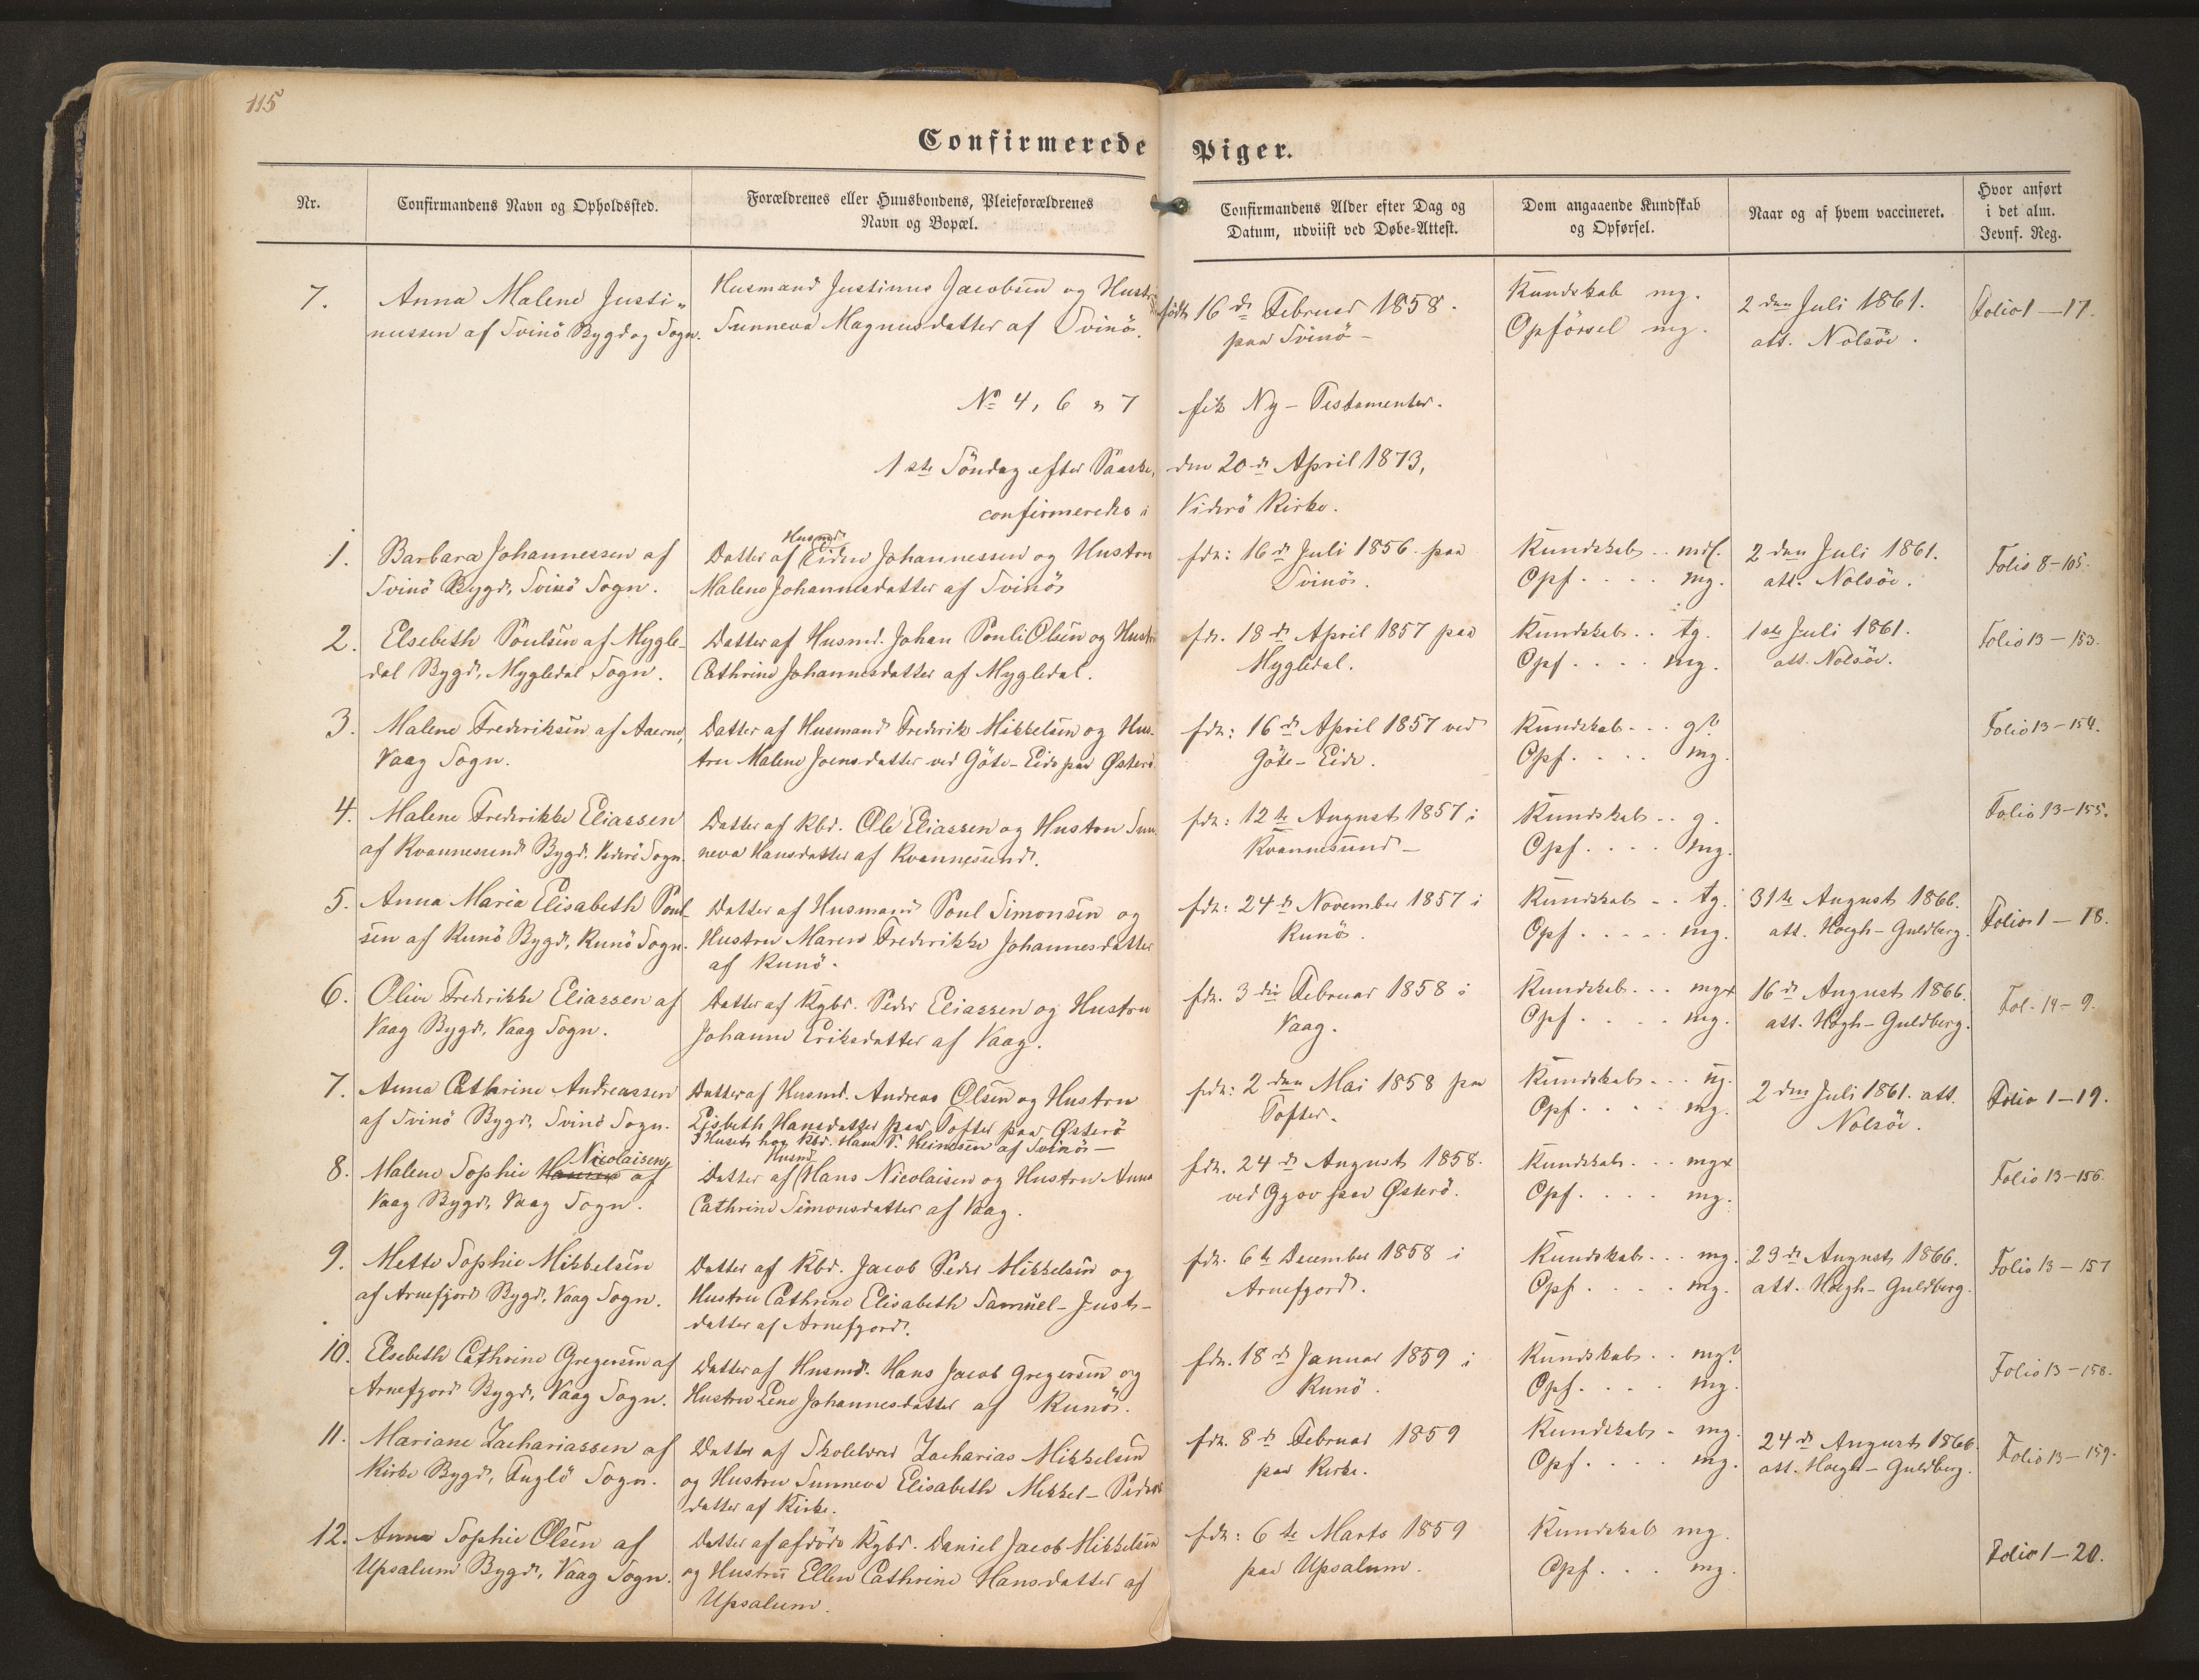 115
Confirmerede Piger.
Nr.
Confirmandens Navn og Opholdssted.
Forældrenes eller Huusbondens, Pleieforældrenes
Navn og Bopæl.
Confirmandens Alder efter Dag og
Datum, udviist ved Døbe-Attest.
Dom angaaende Kundskab
og Opførsel.
Naar og af hvem vaccineret.
Hvor anført
i det alm.
Jevnf. Reg.
7.
Anna Malene Justi-
nussen af Svinö Bygd og Sogn.
Husmand Justinus Jacobsen og Hustru
Sunneva Magnusdatter af Svinö.
født 16de Februar 1858.
paa Svinö
Kundskab mg.
Opförsel mg.
2den Juli 1861.
att. Nolsöe.
Folio 1 - 17.
No 4, 6 & 7 fik Ny-Testamenter.
1ste Söndag efter Paaske, den 20de April 1873,
confirmeredes i Viderö Kirke.
1.
Barbara Johannessen af
Svinö Bygd, Svinö Sogn.
Husmd.
Datter af Eiden Johannessen og Hustru
Malene Johannesdatter af Svinö
fdt: 16de Juli 1856 paa
Svinö.
Kundskab .. mdl.
Opf .... mg.
2den Juli 1861.
att. Nolsöe.
Folio 8-105.
2.
Elsebeth Poulsen af Mygle-
dal Bygd, Mygledal Sogn.
Datter af Husmd. Johan Pouli Olsen og Hustru
Cathrine Johannesdatter af Mygledal.
fdt. 18de April 1857 paa
Mygledal.
Kundskab .. tg.
Opf .... mg.
1ste Juli 1861.
att. Nolsöe.
Folio 13 - 153.
3.
Malene Frederiksen af
Vaag Sogn.
Datter af Husmand Frederik Mikkelsen og Hus-
tru Malene Joensdatter ved Göte-Eide paa Österö
fdt: 16de April 1857 ved
Göte-Eide.
Kundskab ... g?
Opf .... mg.
Folio 13 - 154.
4.
Malene Frederikke Eliassen
af Kvannesund Bygd. Viderö Sogn.
Datter af Kbd. Ole Eliassen og Hustru Sun-
neva Hansdatter af Kvannesund.
fdt: 12te August 1857 i
Kvannesund
Kundskab .. g.
Opf .... mg.
Folio 13-155.
5.
Anna Maria Elisabeth Poul-
sen af Kunö Bygd, Kunö Sogn.
Datter af Husmand Poul Simonsen og
Hustru Maren Frederikke Johannesdatter
af Kunö.
fdt: 24de November 1857 i
Kunö.
Kundskab .. tg.
Opf .... mg.
31te August 1866.
att. Høegh-Guldberg.
Folio 1 - 18.
6.
Olive Frederikke Eliassen af
Vaag Bygd, Vaag Sogn.
Datter af Kgbd. Peder Eliassen og Hustru
Johanne Eriksdatter af Vaag.
fdt. 3die Februar 1858 i
Vaag.
Kundskab ... mgx
Opf .... mg.
16de August 1866.
att. Høgh-Guldberg.
Fol. 14 - 9.
7.
Anna Cathrine Andreassen
af Svinö Bygd, Svinö Sogn.
Datter af Husmd. Andreas Olsen og Hustru
Lisbeth Hansdatter paa Tofter paa Österö
I Huset hos Kbd. Hans P. Heinesen af Svinö
fdt: 2den Mai 1858 paa
Tofter.
Kundskab ... ug.
Opf .... mg.
2den Juli 1861. att.
Nolsöe.
Folio 1-19.
8.
Nicolaisen
Malene Sophie Hansen af
Vaag Bygd, Vaag Sogn.
Husmd
Datter af Hans Nicolaisen og Hustru Anna
Cathrine Simonsdatter af Vaag.
fdt. 24de August 1858.
ved Gjov paa Österö.
Kundskab ... mgx
Opf .... mg.
Folio 13-156.
9.
Mette Sophie Mikkelsen
af Arnefjord Bygd, Vaag Sogn.
Datter af Kbd. Jacob Peder Mikkelsen og
Hustru Cathrine Elisabeth Samuel-Justs-
datter af Arnefjord.
fdt. 6te December 1858 i
Arnefjord.
Kundskab ... mg.
Opf .... mg.
29de August 1866.
att. Høegh-Guldberg.
Folio 13 - 157
10.
Elsebeth Cathrine Gregersen af
Arnefjord Bygd, Vaag Sogn.
Datter af Husmd. Hans Jacob Gregersen og
Hustru Lene Johannesdatter af Kunö.
fdt. 18de Januar 1859 i
Kunö.
Kundskab .. mg?
Opf .... mg.
Folio 13-158.
11.
Mariane Zachariassen af
Kirke Bygd, Fuglö Sogn.
Datter af Skolelærer Zacharias Mikkelsen
og Hustru Sunneva Elisabeth Mikkel-Peders
datter af Kirke.
fdt. 8de Februar 1859
paa Kirke.
Kundskab . mg.
Opf .... mg.
24de August 1866.
att. Høegh-Guldberg.
Folio 13-159.
12.
Anna Sophie Olsen af
Upsalum Bygd, Vaag Sogn.
Datter af afdöde Kgbd. Daniel Jacob Mikkelsen
og Hustru Ellen Cathrine Hansdatter af
Upsalum.
fdt: 6te Marts 1859
paa Upsalum.
Kundskab mg.
Opf ... mg.
Folio 1-20.